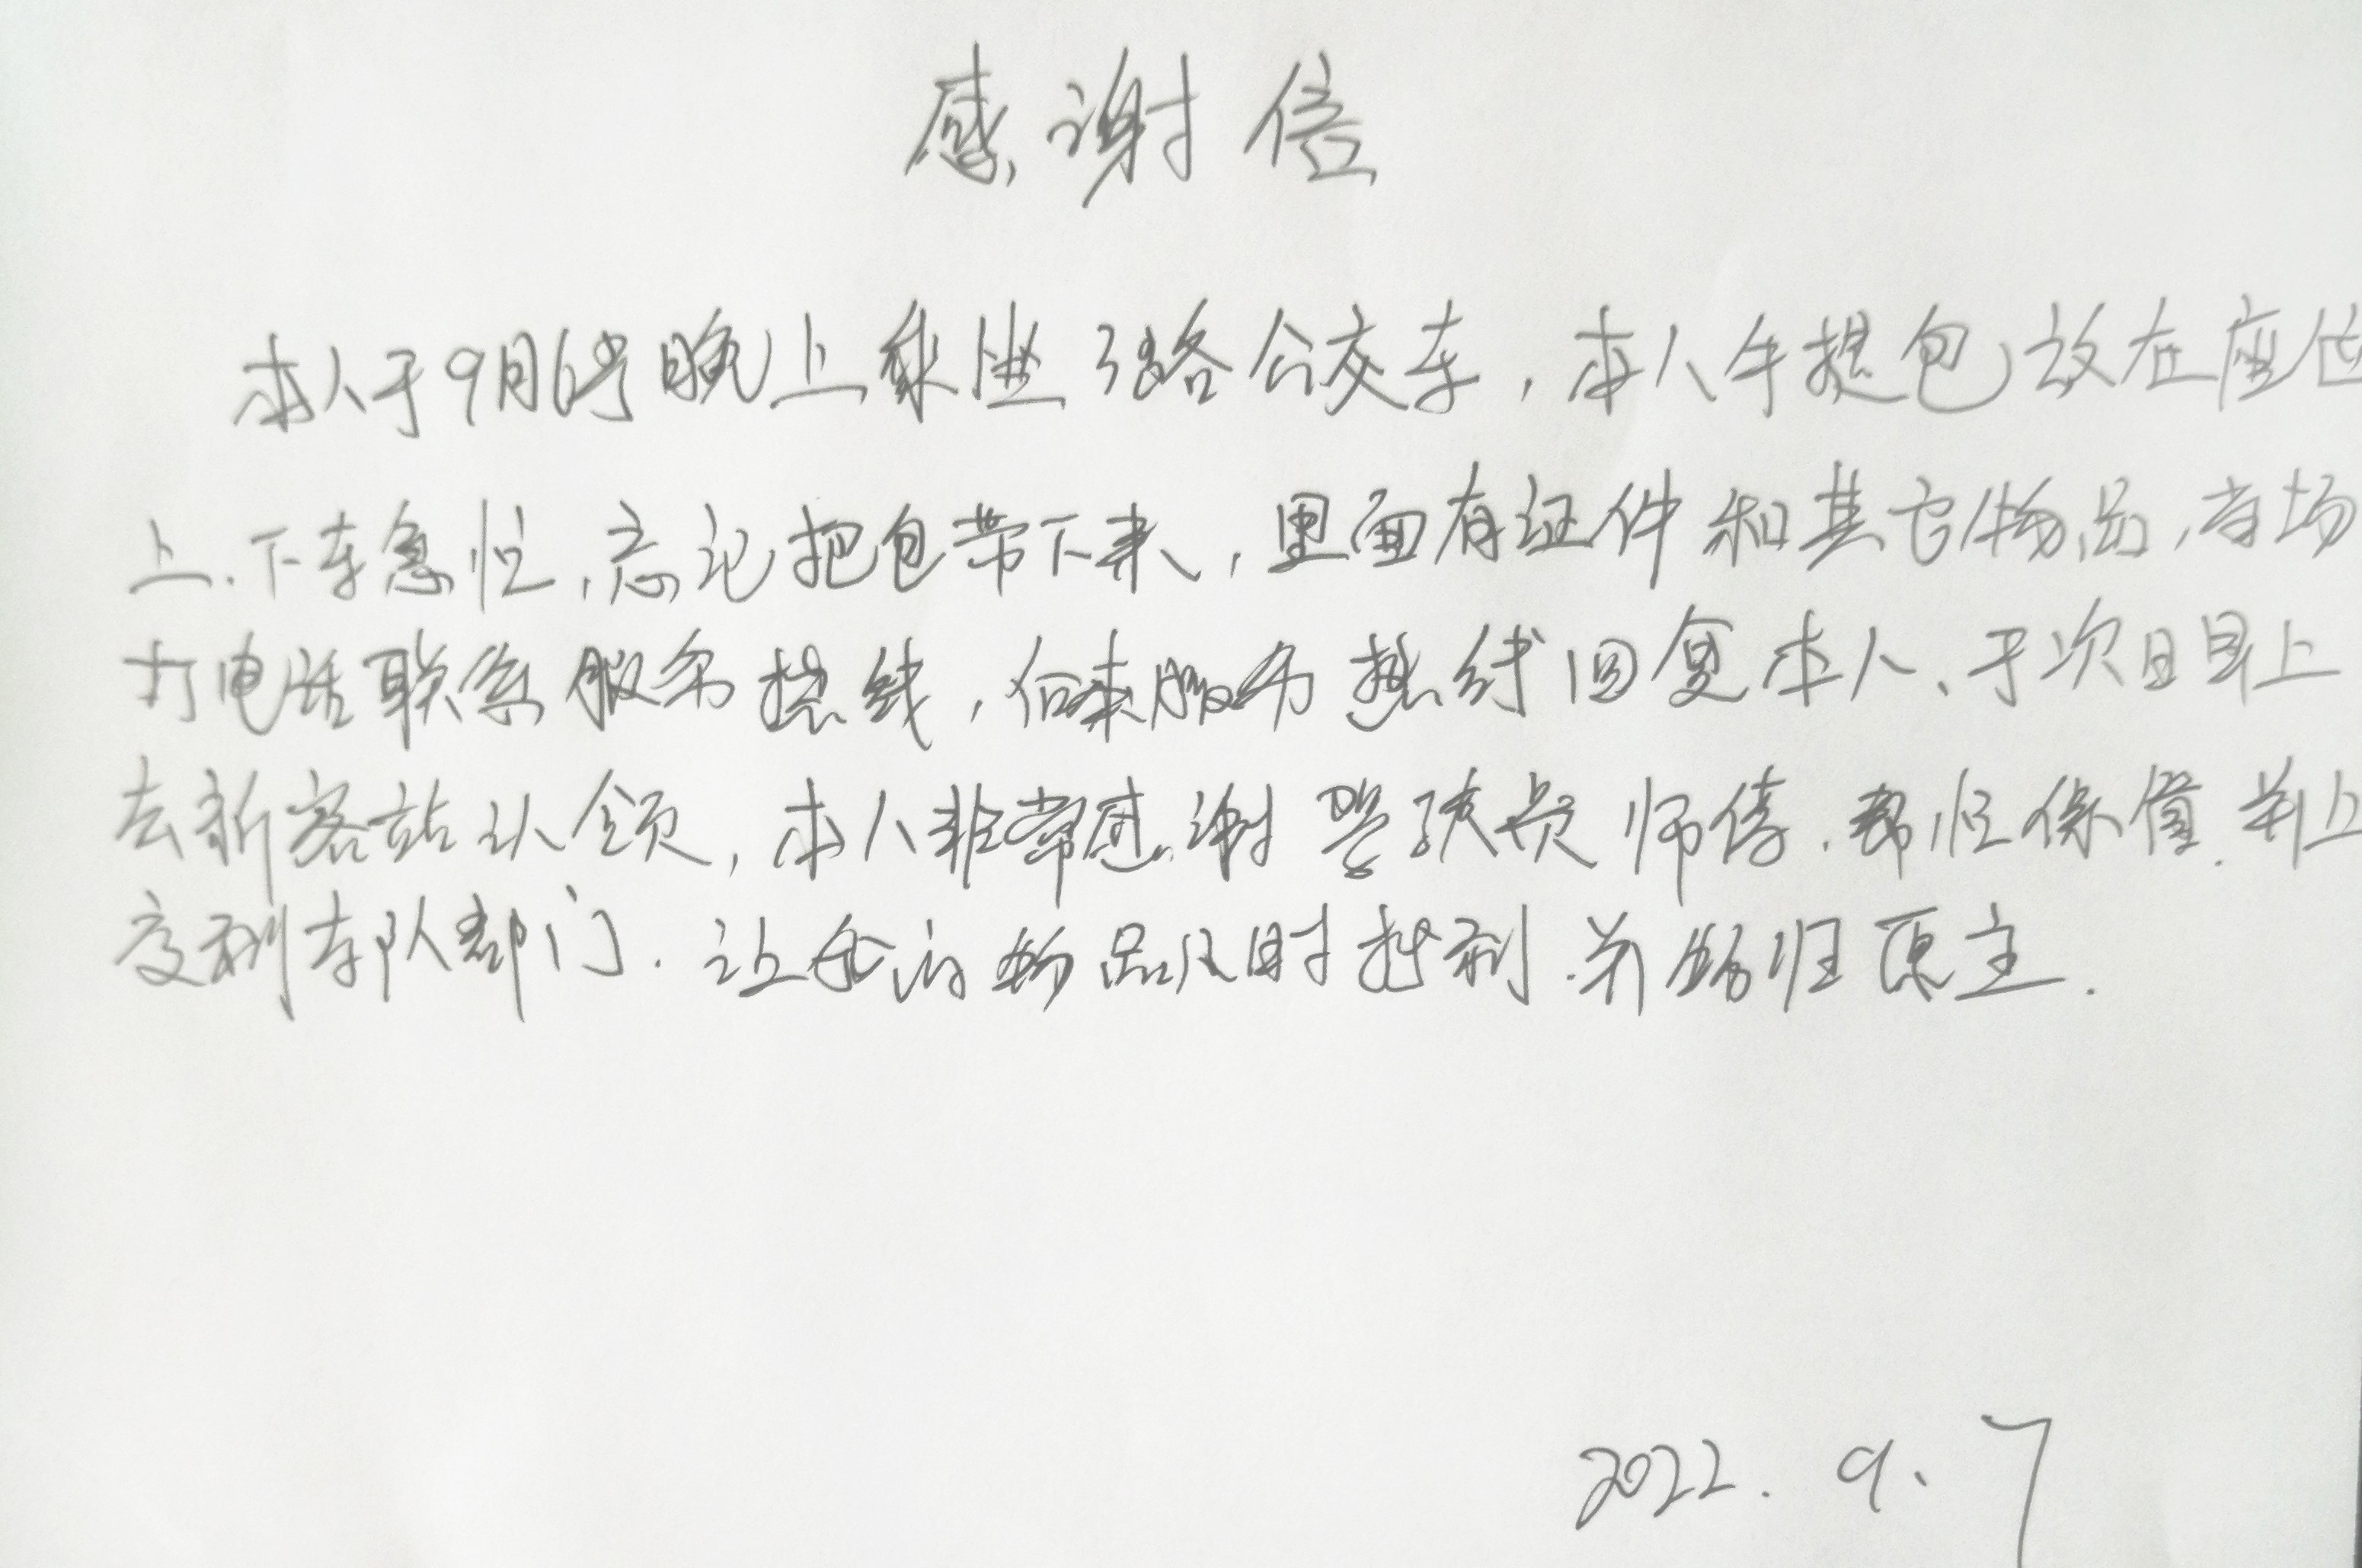 感谢信
本人于9月6号晚上乘坐38路公交车，本人手提包放在座位
上、下车急忙，忘记把包带下来，里面有证件和其它物品，当场
打电话联系服务热线，后来服务热线回复本人、于次日早上
去新客站认领，本人非常感谢驾驶员师傅、帮忙保管、并上
交到车队部门、让我的物品及时找到、并物归原主.
2022.9.7